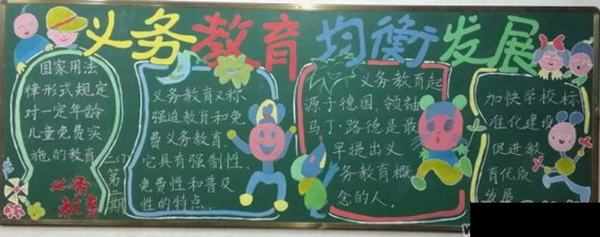 义务教育均衡发展
国家用法
律形式规定
对一定年龄
儿童免费实
施的教育
义务
教育
义务教育又称
强迫教育和免
费义务教育
它具有强制性、
免费性和普及
性的特点
义务教育起
源于德国,领袖
马丁·路德是最
早提出义
务教育概
念的人,
加快学校标
准化建设
促进教
育优质
发展